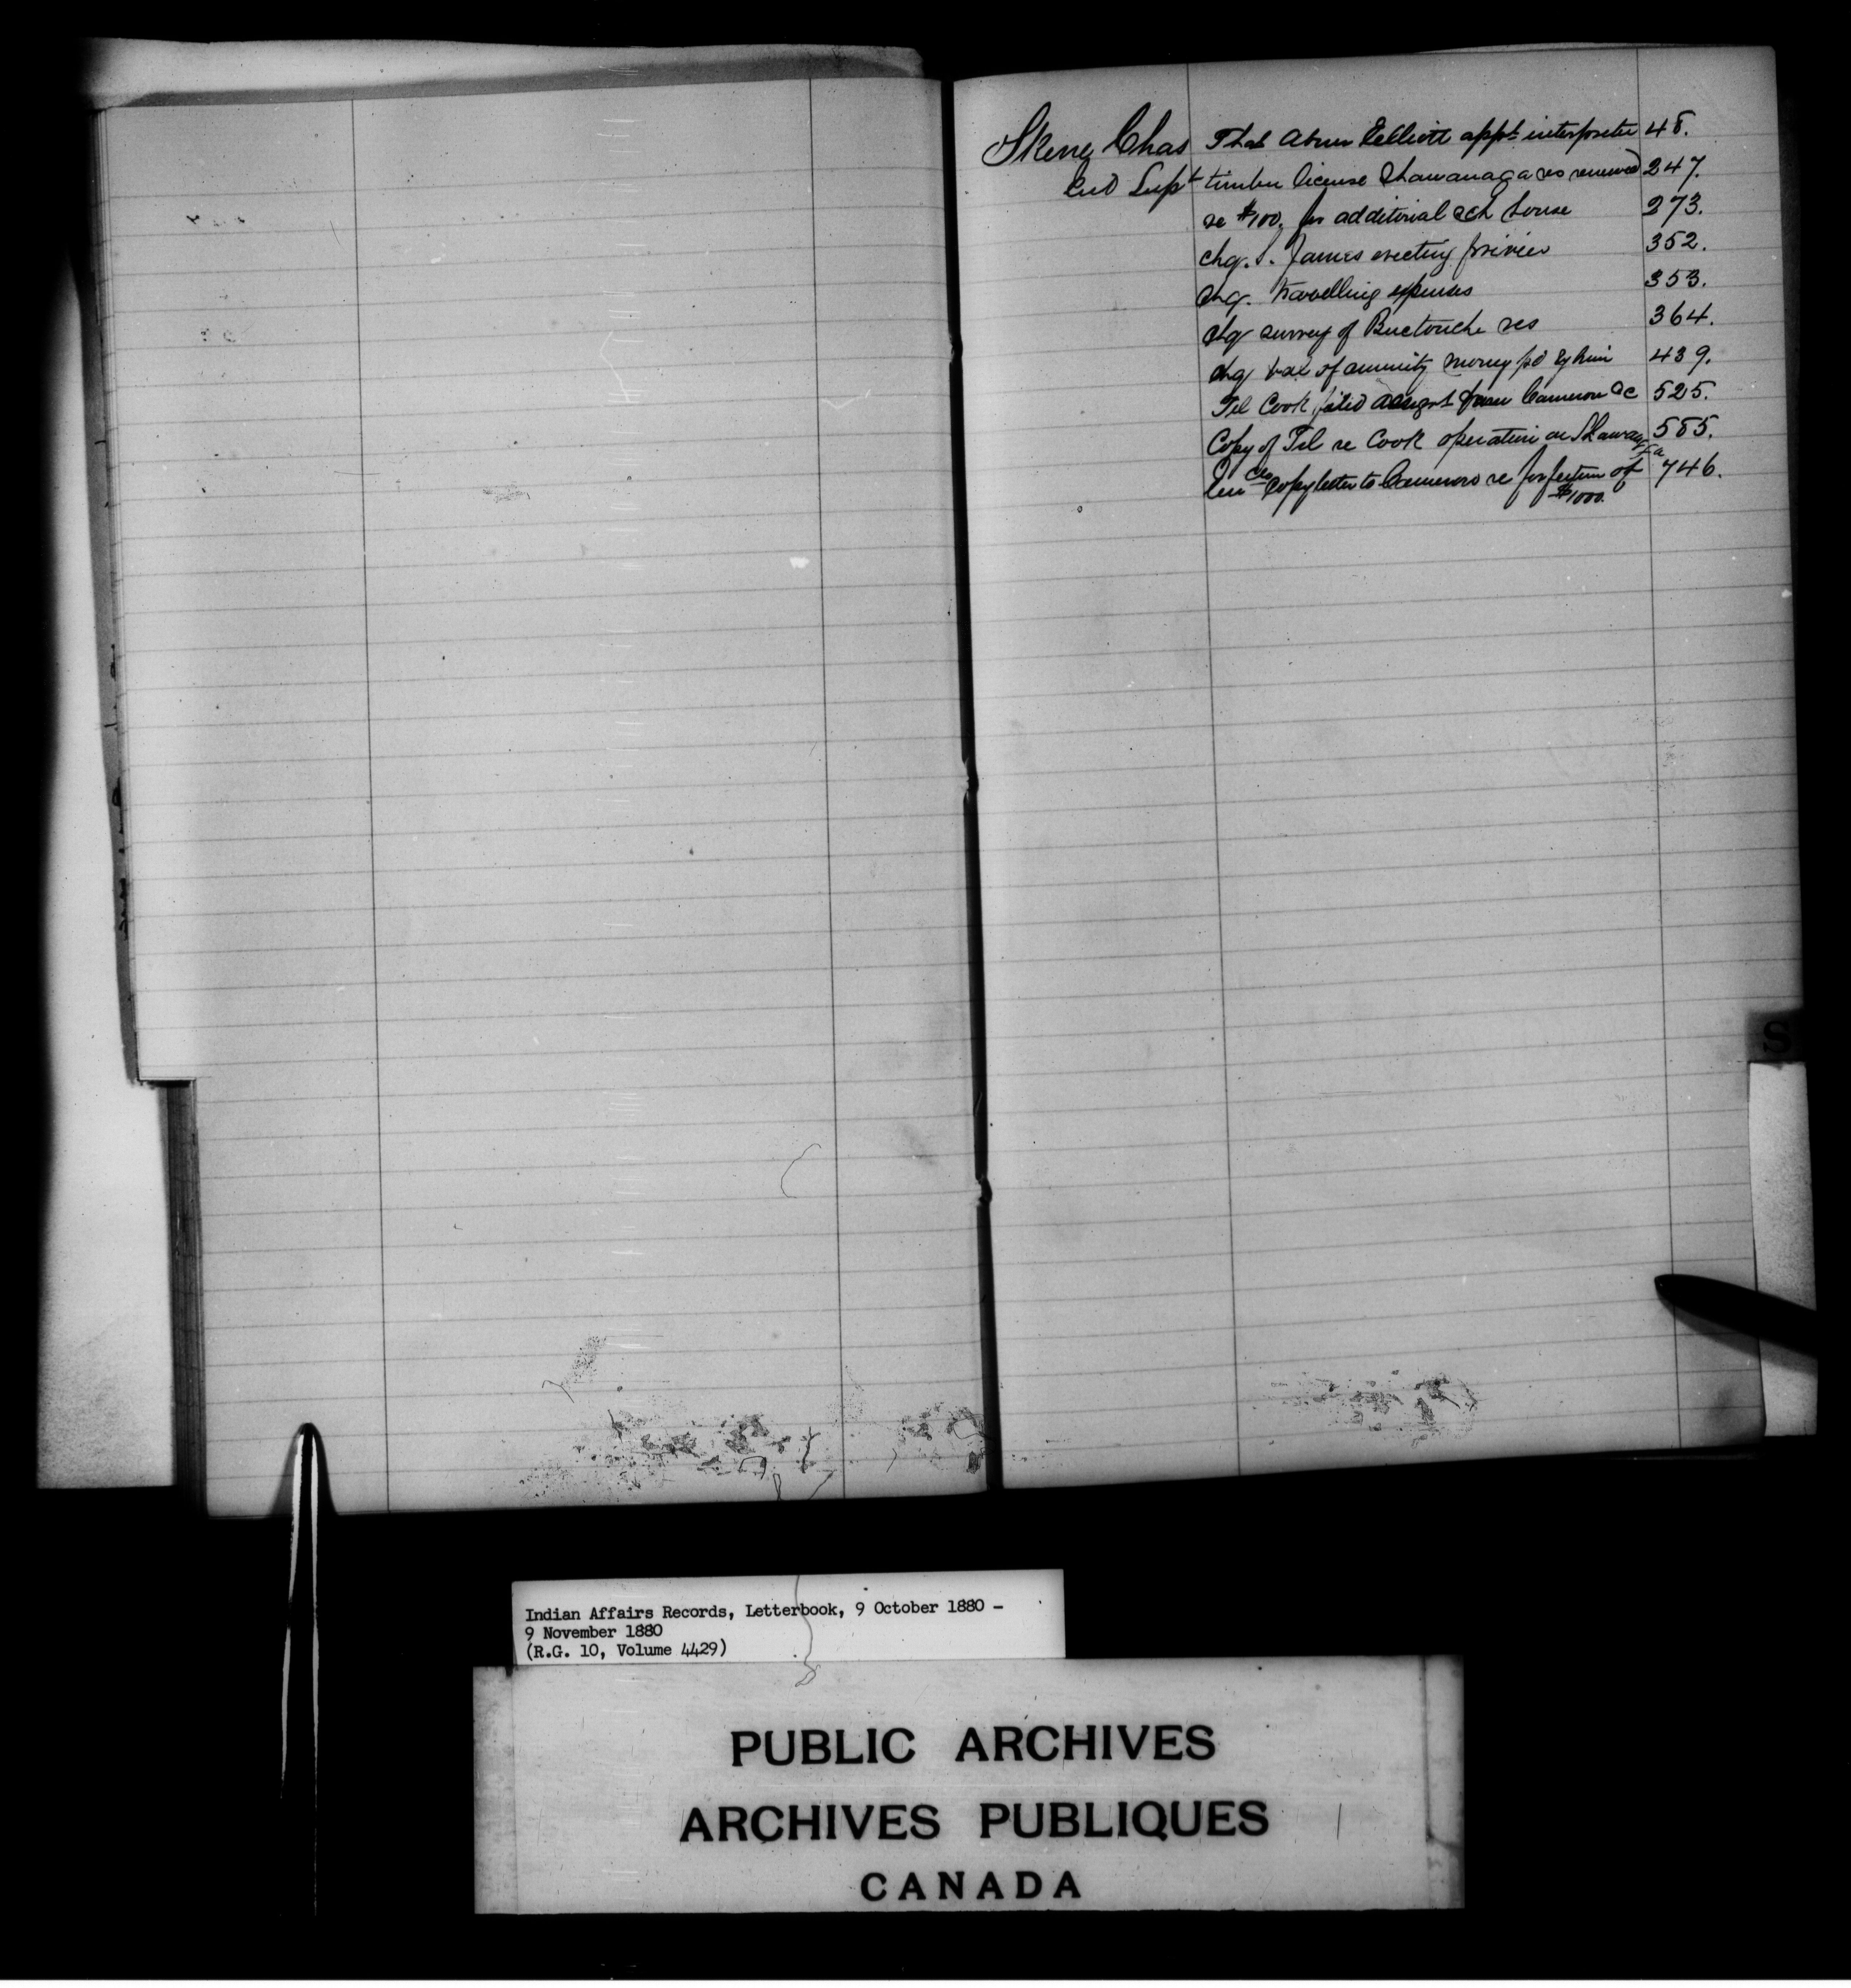 Skene Chas That Abner Elliott appt interpreter 48.
Ind Supt timber license Shawanaga res renewed 247.
re $100. for additional sch house 273.
chq. S. James erecting privies 352.
chq. travelling expenses 353.
chq survey of Buctouche res 364.
chq bal of annuity money pd by him 439.
Tel Cook filed assigt from Cameron &c 525.
Copy of Tel re Cook operation on Shawanaga 585.
copy letter to Cameron re forfeiture of $1000. 746.
S
Indian Affairs Records, Letterbook, 9 October 1880 -
9 November 1880
(R.G. 10, Volume 4429)
PUBLIC ARCHIVES
ARCHIVES PUBLIQUES
CANADA